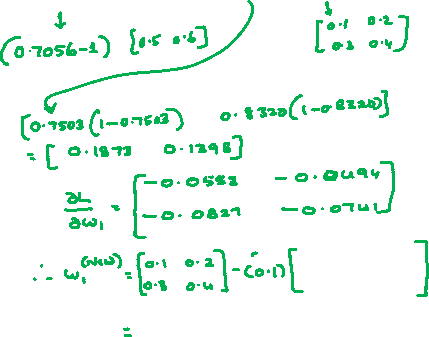 (0.7056-1) [0.5 0.6] [0.1 0.2
0.3 0.4]
[0.7503(1-0.7503) 0.8320(1-0.8320)]
= [0.1873 0.1398]
∂L/∂w₁ = [-0.0583 -0.0494
-0.0827 -0.0741]
∴ w₁^(new) = [0.1 0.2
0.3 0.4] - (0.1) [ ]
=